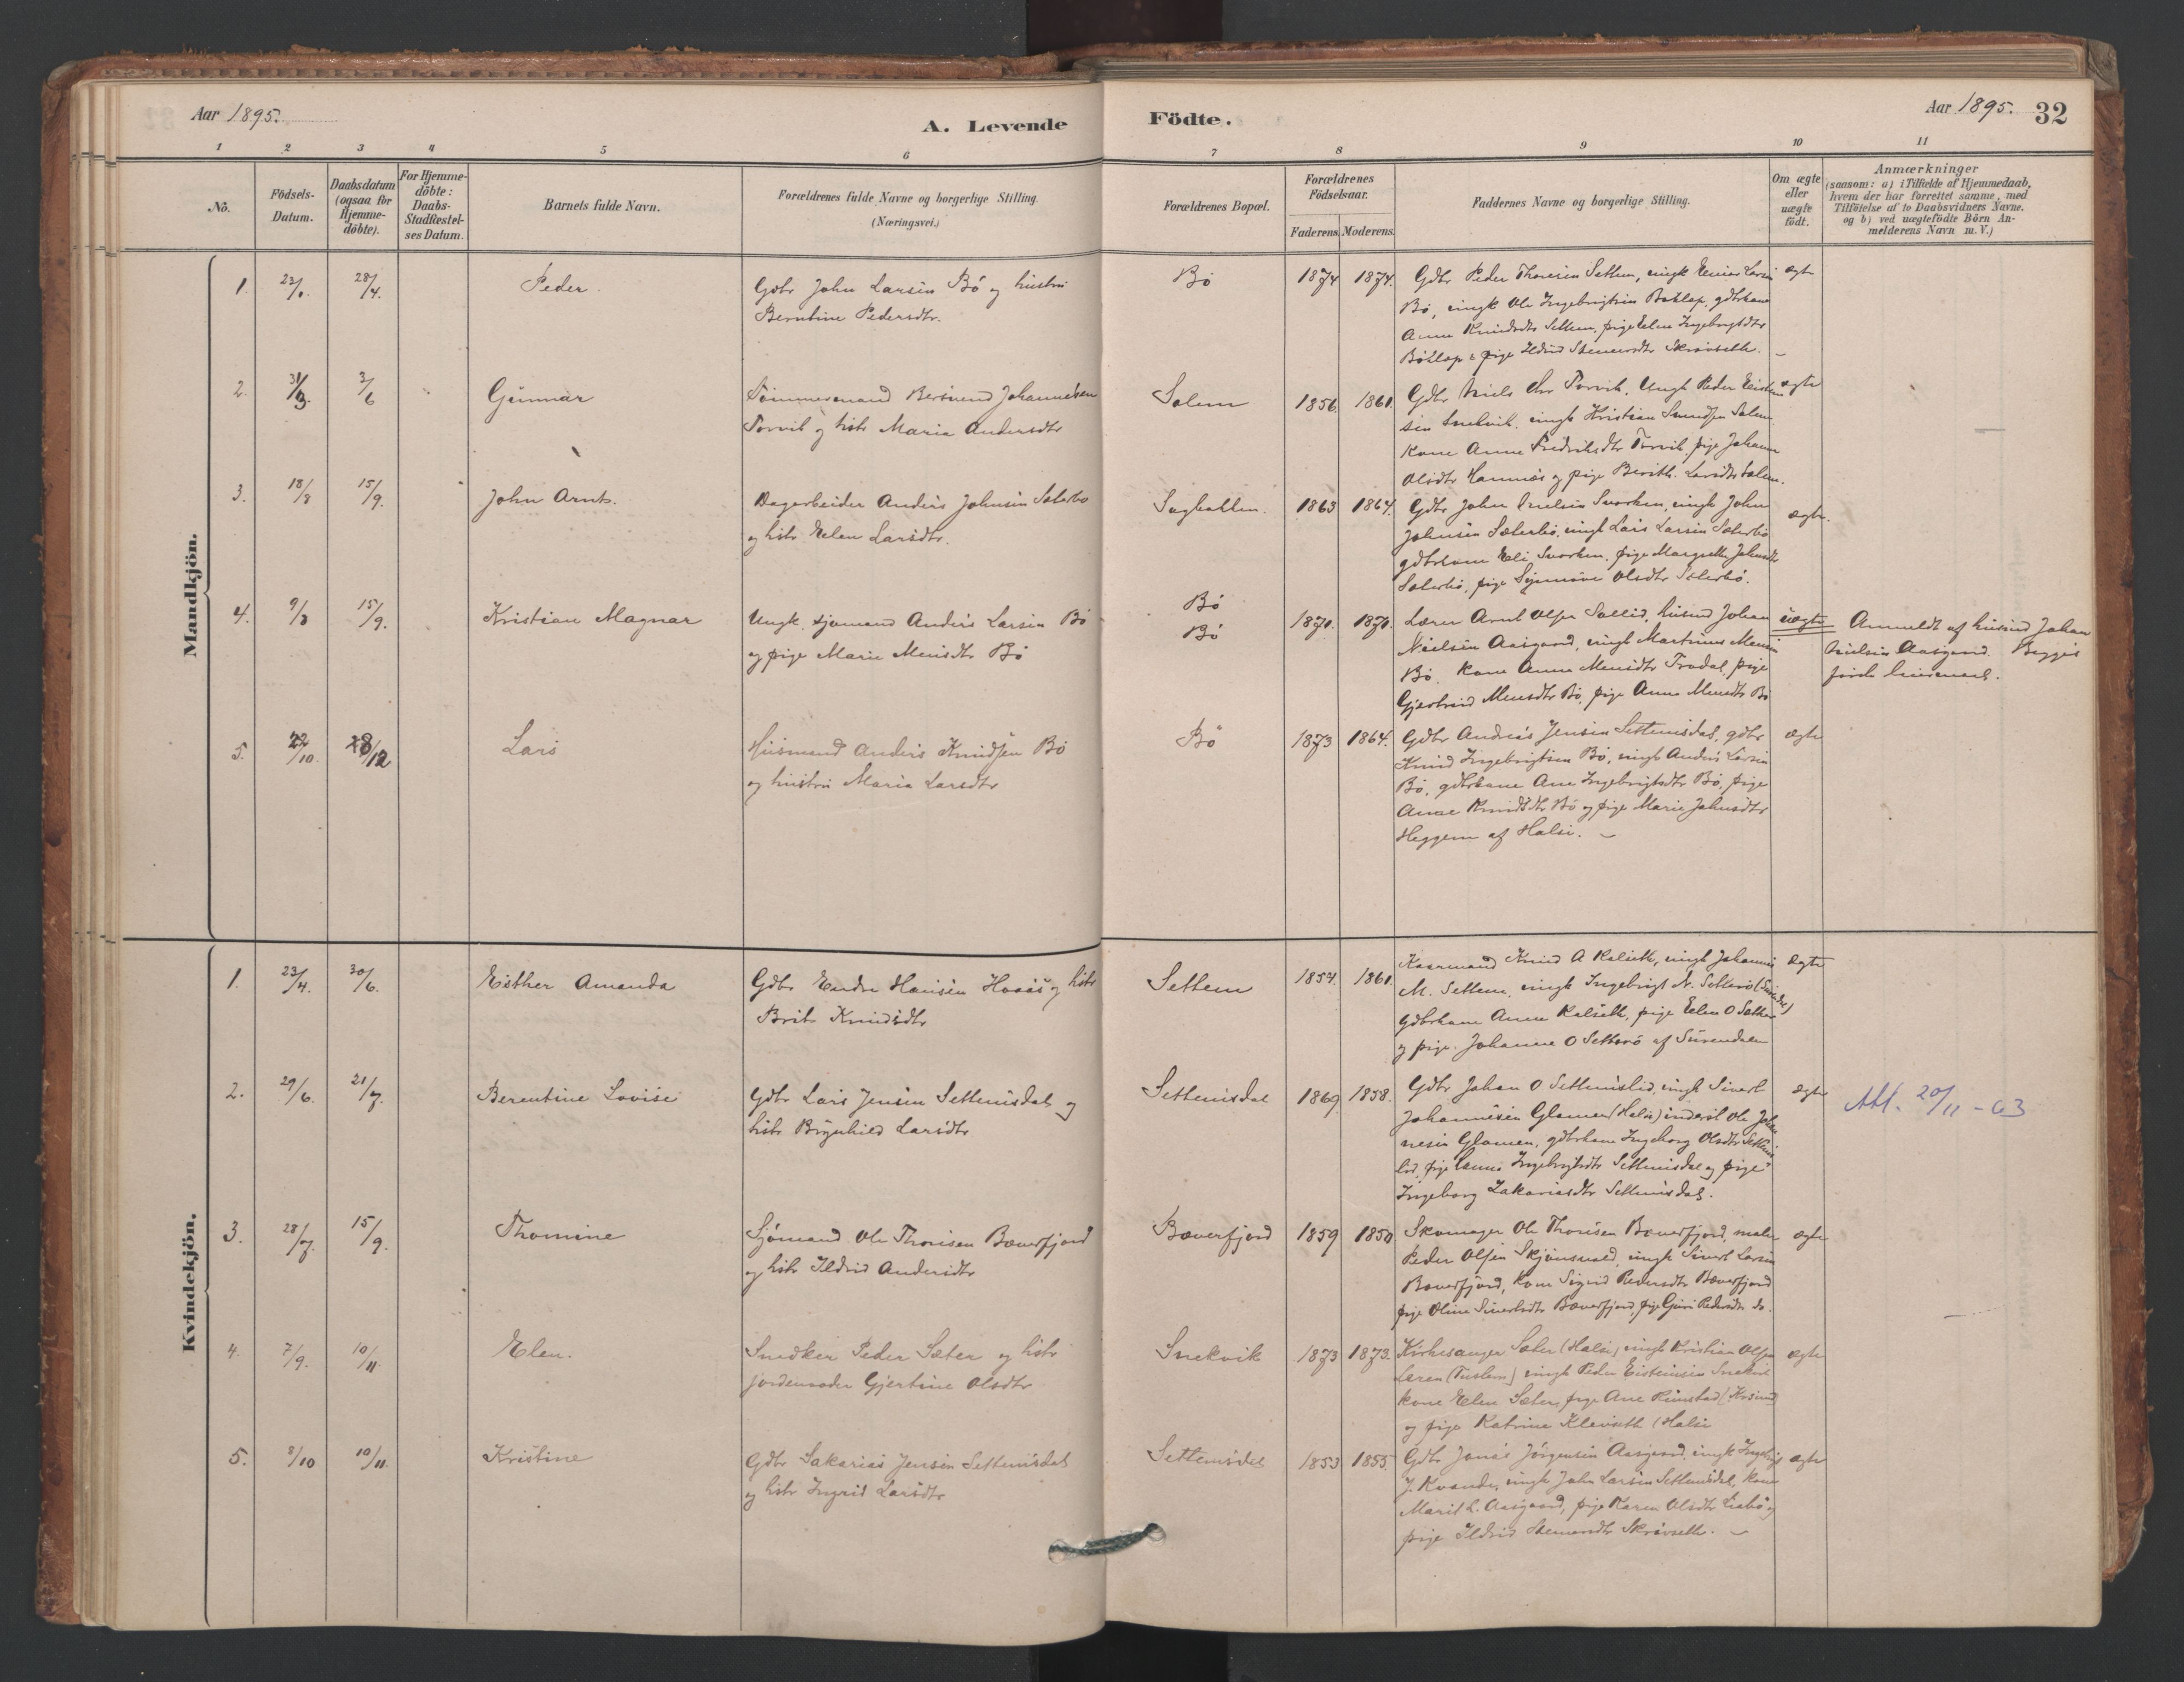 Aar 1895.
A. Levende Födte.
Aar 1895. 32
1 2 3 4 5 6 7 8 9 10 11
No.
Födsels-
Datum.
Daabsdatum
(ogsaa for
Hjemme-
döbte).
For Hjemme-
döbte:
Daabs-
Stadfæstel-
ses Datum.
Barnets fulde Navn.
Forældrenes fulde Navne og borgerlige Stilling.
(Næringsvei.)
Forældrenes Bopæl.
Forældrenes
Födselsaar.
Faderens. Moderens.
Faddernes Navne og borgerlige Stilling.
Om ægte
eller
uægte
födt.
Anmærkninger
(saasom: a) i Tilfælde af Hjemmedaab,
hvem der har forrettet samme, med
Tilföielse af to Daabsvidners Navne.
og b) ved uægtefödte Börn An-
melderens Navn m.V.)
Mandkjön.
1. 28/4. Peder.
Gdbr John Larsen Bö og hustru
Berntine Pedersdtr.
Bö 1874 1874.
Gdbr Peder Thoresen Settem, ungk Einar Larsen
Bö, ungk Ole Ingebrigtsen Böklep, gdbrkone
Anne Knudsdtr Settem, pige Elen Ingebrigtsdtr
Böklep & pige Ildrid Stenersdtr Skrövseth. –
ægte
2. 31/3. 3/6 Gunnar
Tömmermand Bersvend Johannesen
Torvik og hstr Maria Andersdtr
Solem 1856. 1861.
Gdbr Niels Chr Torvik, Ungk Peder Eisten
sen Snekvik, ungk Kristian Solem
Kone Anne Fredriksdtr Torvik, pige Johanne
Olsdtr Hamnes og pige Berith Larsdtr Solem.
ægte
3. 18/8 15/9. John Arnt.
Dagarbeider Anders Johnsen Sæterbö
og hstr Elen Larsdtr.
1863 1864.
Gdbr John Nielsen Svorken, ungk John
Johnsen Sæterbö, ungk Lars Larsen Sæterbö
gdbrkone Eli Svorken, pige Margrethe Johnsdtr
Sæterbö, pige Synnöve Olsdtr Sæterbö.
ægte.
4. 9/8 15/9. Kristian Magnar
Ungk. sjömand Anders Larsen Bö
og pige Marie Monsdtr Bö
Bö
Bö
1870. 1870.
Lærer Arnt Olsen Sollid, husmd Johan
Nielsen Aasgaard, ungk Martinus Monsen
Bö, Kone Anne Monsdtr Trodal, pige
Gjertrud Monsdtr Bö, pige Anne Monsdtr Bö
uægte
Anmeldt af husmd Johan
Nielsen Aasgaard. Begges
förste leiermaal.
5. 22/10. 28/12 Lars
Husmand Anders Knudsen Bö
og hustru Maria Larsdtr
Bö 1873 1864.
Gdbr Andreas Jensen Settemsdal, gdbr
Knud Ingebrigtsen Bö, ungk Anders Larsen
Bö, gdbrkone Ane Ingebrigtsdtr Bö, pige
Anne Knudsdtr Bö og pige Marie Johnsdtr
Heggem af Halse. –
ægte
Kvindekjön.
1. 23/4. 30/6. Esther Amanda
Gdbr Endre Hansen Hoaas og hstr
Brit Knudsdtr
Settem 1854. 1861.
Kaarmand Knud A Kalseth, ungk Johannes
M. Settem, ungk Ingebrigt N. Sæterö (Surendal)
Gdbrkone Anne Kalseth, pige Elen O Sæther
og pige Johanne O Sæterö af Surendalen
ægte
2. 29/6. 21/7. Berentine Lovise
Gdbr Lars Jensen Settemsdal og
hstr Brynhild Larsdtr
Settemsdal 1869. 1858.
Gdbr Johan O Settemslid, ungk Sivert
Johannesen Glamen (Halse) inderst Ole Johan
nesen Glamen, gdbrkone Ingeborg Olsdtr Settems
lid, pige Anne Ingebrigtsdtr Settemsdal og pige
Ingeborg Zakariasdtr Settemsdal.
ægte
Att. 20/11 - 63
3. 28/7. 15/9. Thomine
Sjömand Ole Thoresen Bæverfjord
og hstr Ildrid Andersdtr
Bæverfjord 1859 1850
Skomager Ole Thoresen Bæverfjord, maler
Peder Olsen Skjönsvold, ungk Sivert Larsen
Bæverfjord, Kone Sigrid Pedersdtr Bæverfjord
pige Oline Sivertsdtr Bæverfjord, pige Guri Pedersdtr do.
ægte
4. 7/9. 10/11. Elen.
Snedker Peder Sæter og hstr
jordemoder Gjertine Olsdtr
Snekvik 1873 1873.
Kirkesanger Sæter (Halse) ungk Kristian Olsen
Leren (Tustern) ungk Peder Eistensen Snekvik
kone Elen Sæter, pige Ane Rimstad (Krsund
og pige Katrine Klevseth (Halse
ægte
5. 8/10 10/11. Kristine
Gdbr Sakarias Jensen Settemsdal
og hstr Ingrid Larsdtr
Settemsdal 1853 1855.
Gdbr Jonas Jörgensen Aasgaard, ungk Ingebrigt
J. Kvande, ungk John Larsen Settemsdal, kone
Marit L. Aasgaard, pige Karen Olsdtr Lisbö og
pige Ildrid Stenersdtr Skrövseth. –
ægte